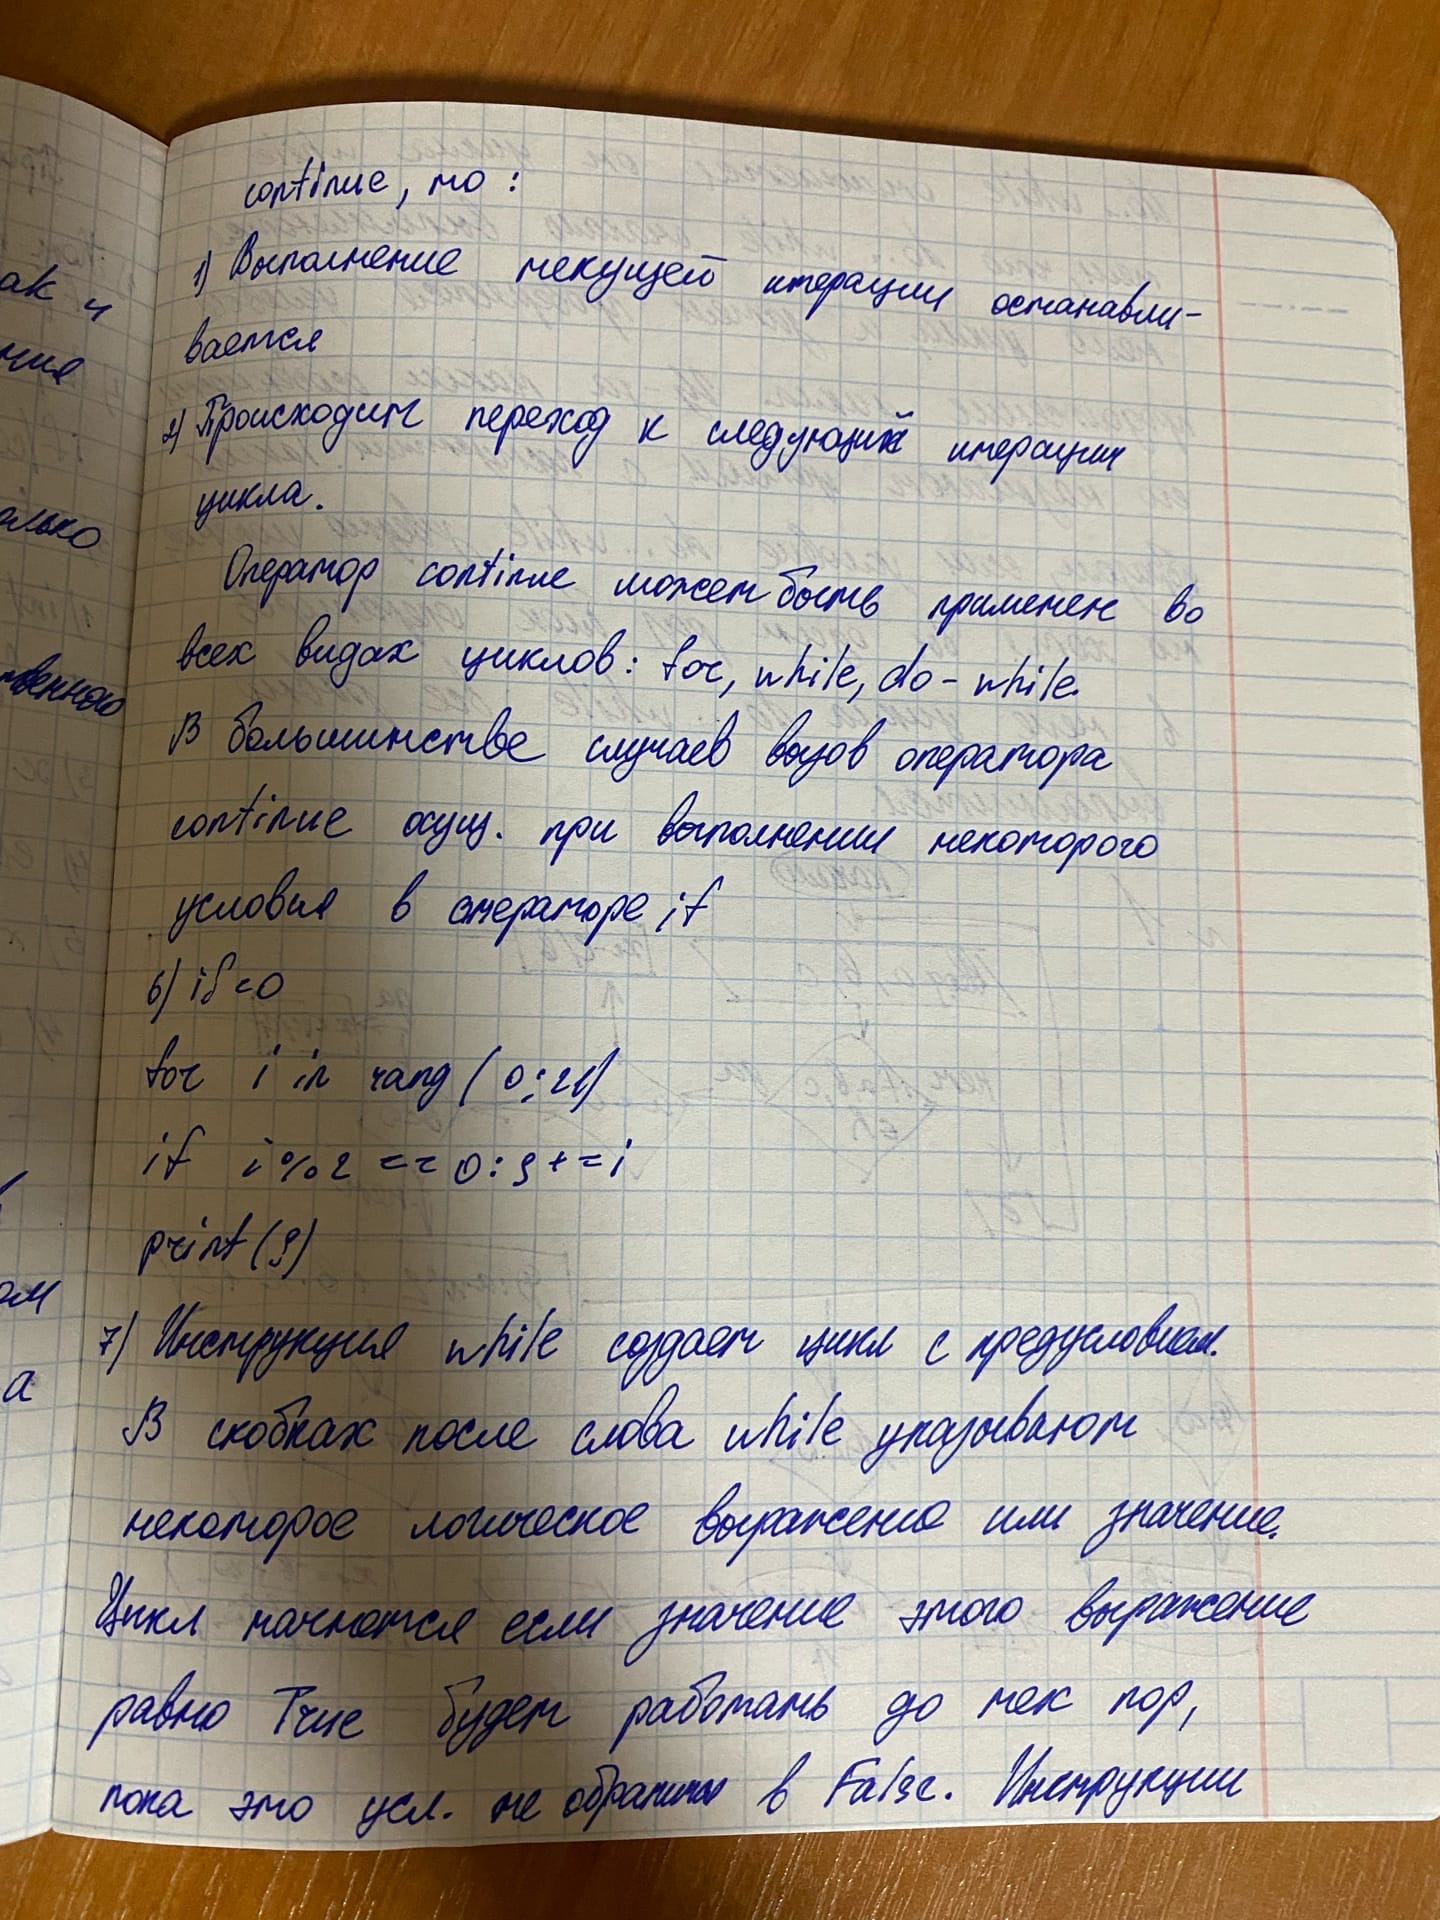 continue, то:
1) Выполнение текущей итерации останавли-
вается
2) Происходит переход к следующий итерации
цикла.
Оператор continue может быть применен во
всех видах циклов: for, while, do-while.
В большинстве случаев вызов оператора
continue осущ. при выполнении некоторого
условия в операторе if
6) if=0
for i in rang (0;21)
if i%2 == 0: s+=i
print(s)
7) Инструкция while создает цикл с предусловием.
В скобках после слова while указывают
некоторое логическое выражение или значение.
Цикл начнется если значение этого выражение
равно True будет работать до тех пор,
пока это усл. не обратится в False. Инструкции
ак и
ния
олько
твенного
ом
а